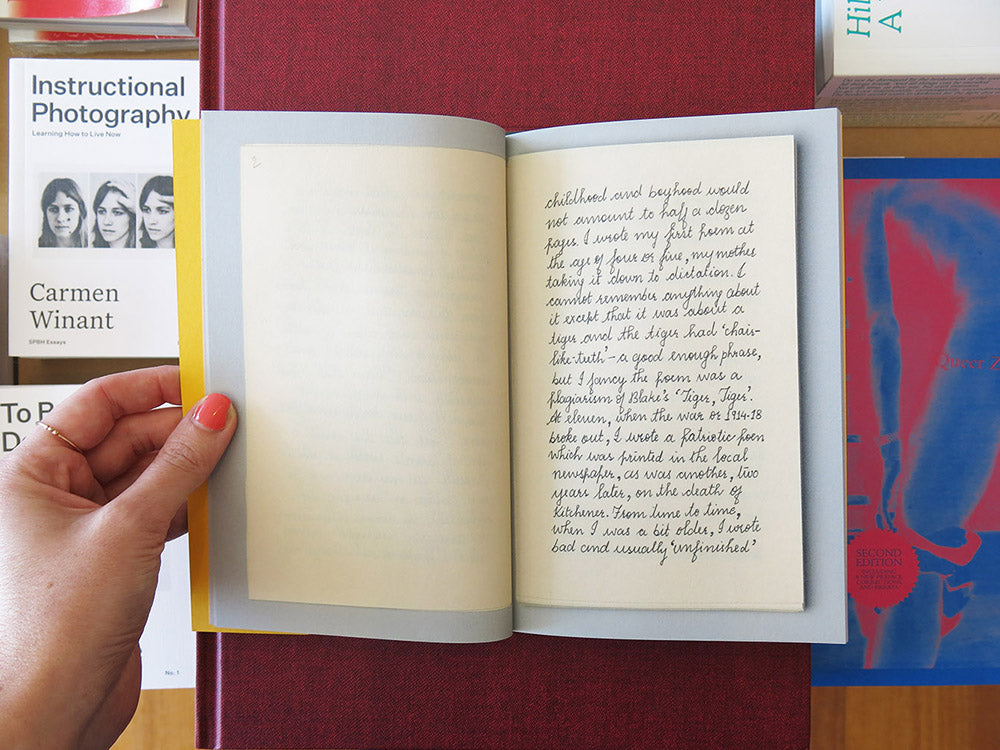 Instructional
Photography
Learning How to Live Now
Carmen
Winant
SPBH Essays
To
No. 1
2
childhood and boyhood would
not amount to half a dozen
pages. I wrote my first poem at
the age of four or five, my mother
taking it down to dictation. I
cannot remember anything about
it except that it was about a
tiger and the tiger had 'chair-
like-teeth' - a good enough phrase,
but I fancy the poem was a
plagiarism of Blake's 'Tiger, Tiger'.
At eleven, when the war or 1914-18
broke out, I wrote a patriotic poem
which was printed in the local
newspaper, as was another, two
years later, on the death of
Kitchener. From time to time,
when I was a bit older, I wrote
bad and usually 'unfinished'
A
Queer
SECOND
EDITION